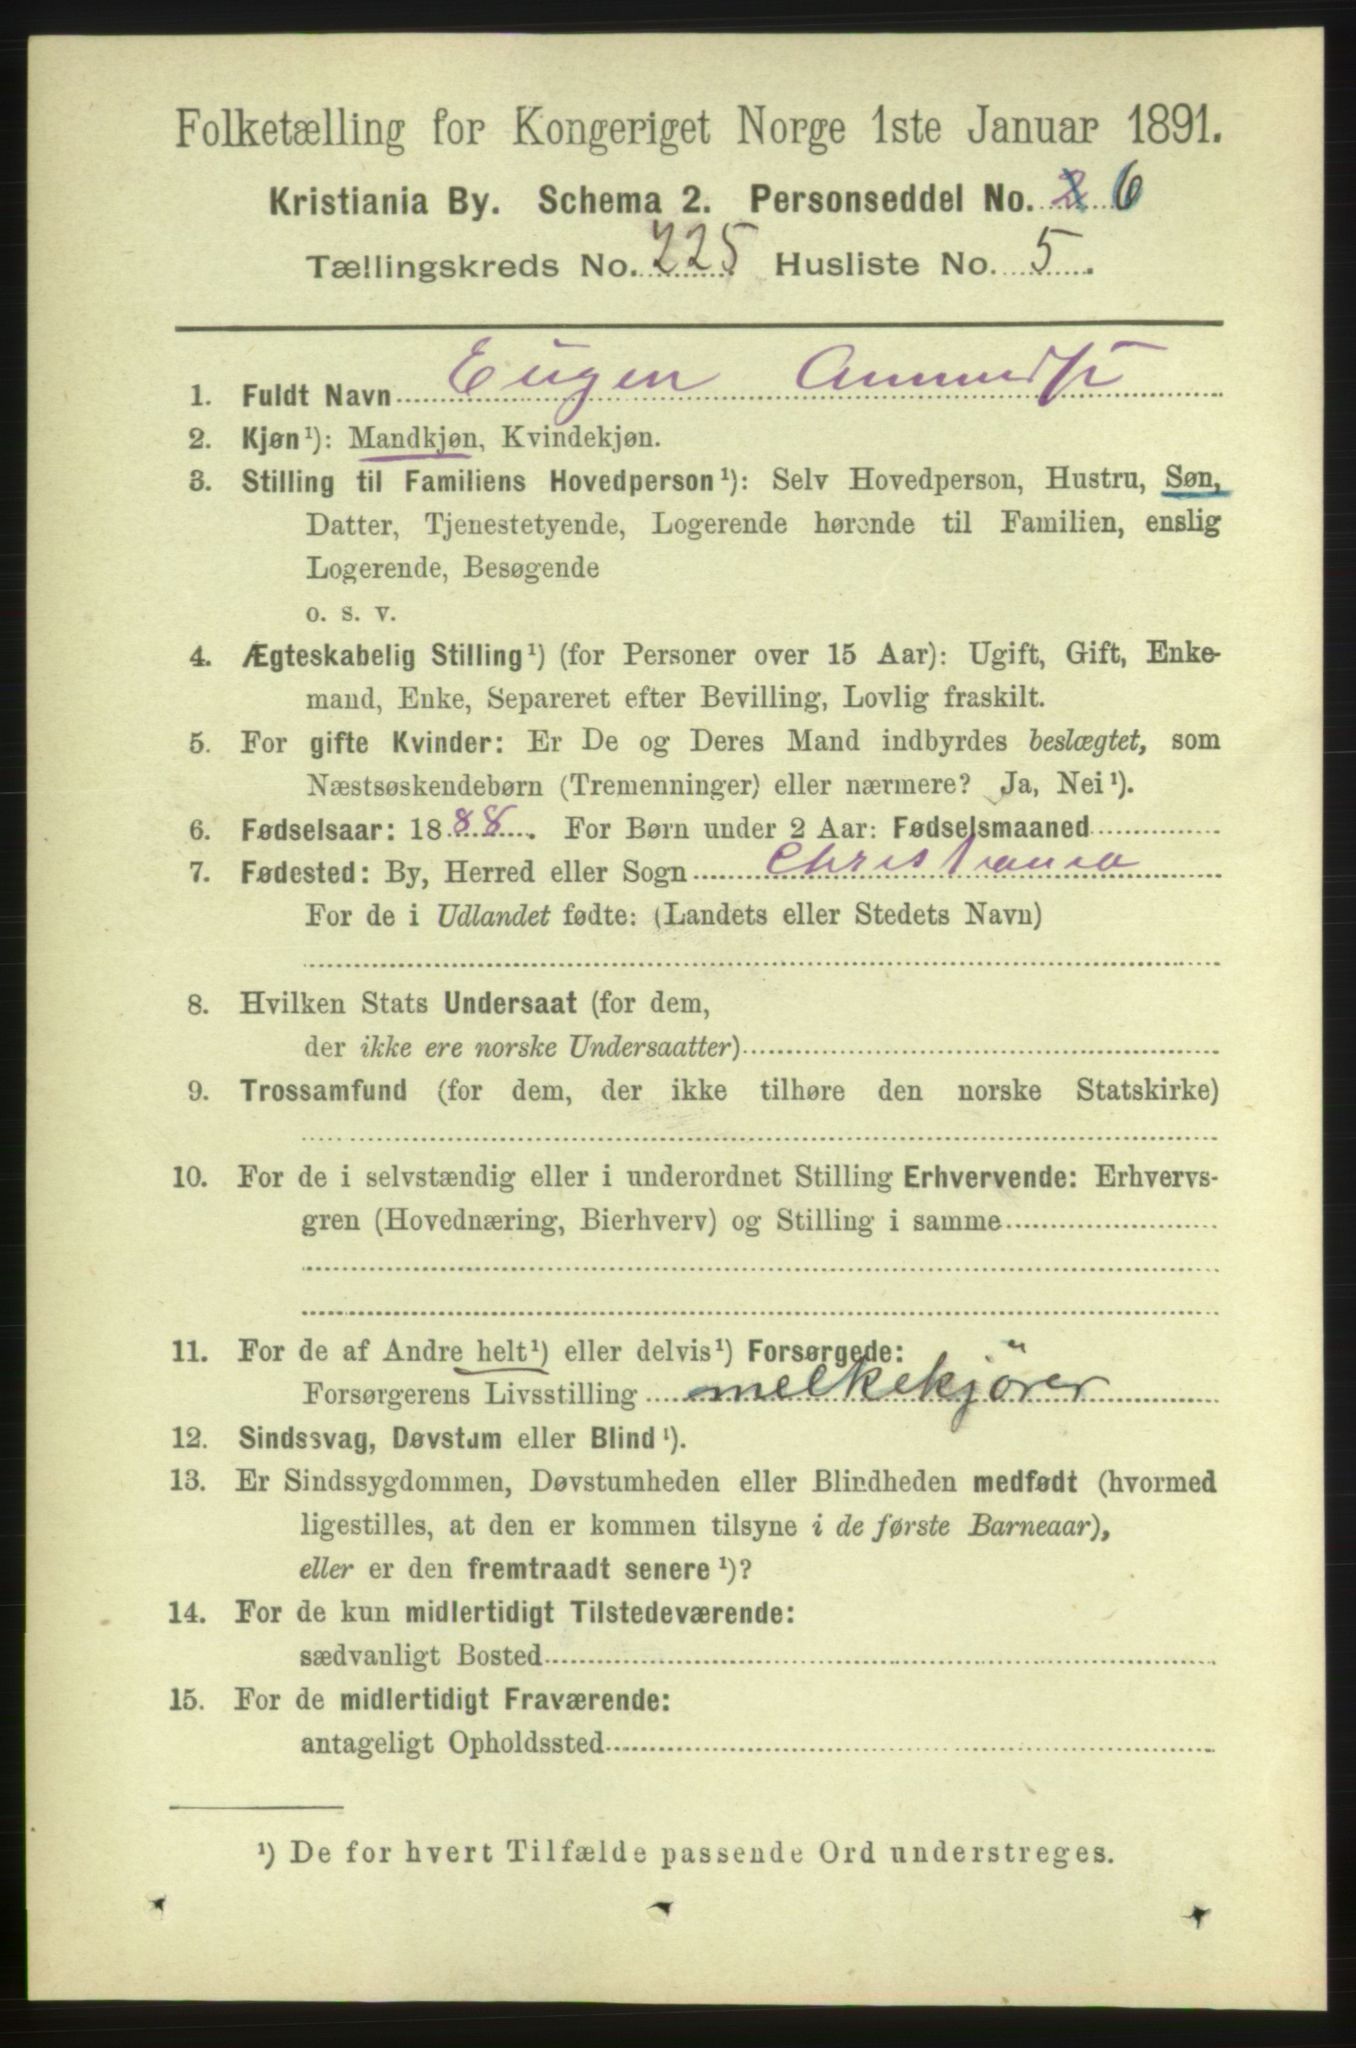 Folketælling for Kongeriget Norge 1ste Januar 1891.
Kristiania By. Schema 2. Personseddel No. 6
Tællingskreds No. 225 Husliste No. 5.
1. Fuldt Navn Eugen
2. Kjøn¹): Mandkjøn, Kvindekjøn.
3. Stilling til Familiens Hovedperson¹): Selv Hovedperson, Hustru, Søn,
Datter, Tjenestetyende, Logerende hørende til Familien, enslig
Logerende, Besøgende
o. s. v.
4. Ægteskabelig Stilling¹) (for Personer over 15 Aar): Ugift, Gift, Enke-
mand, Enke, Separeret efter Bevilling, Lovlig fraskilt.
5. For gifte Kvinder: Er De og Deres Mand indbyrdes beslægtet, som
Næstsøskendebørn (Tremenninger) eller nærmere? Ja, Nei¹).
6. Fødselsaar: 1888. For Børn under 2 Aar: Fødselsmaaned
7. Fødested: By, Herred eller Sogn Christiania
For de i Udlandet fødte: (Landets eller Stedets Navn)
8. Hvilken Stats Undersaat (for dem,
der ikke ere norske Undersaatter)
9. Trossamfund (for dem, der ikke tilhøre den norske Statskirke)
10. For de i selvstændig eller i underordnet Stilling Erhvervende: Erhvervs-
gren (Hovednæring, Bierhverv) og Stilling i samme
11. For de af Andre helt¹) eller delvis¹) Forsørgede:
Forsørgerens Livsstilling melkekjörer
12. Sindssvag, Døvstum eller Blind¹).
13. Er Sindssygdommen, Døvstumheden eller Blindheden medfødt (hvormed
ligestilles, at den er kommen tilsyne i de første Barneaar),
eller er den fremtraadt senere¹)?
14. For de kun midlertidigt Tilstedeværende:
sædvanligt Bosted
15. For de midlertidigt Fraværende:
antageligt Opholdssted
¹) De for hvert Tilfælde passende Ord understreges.